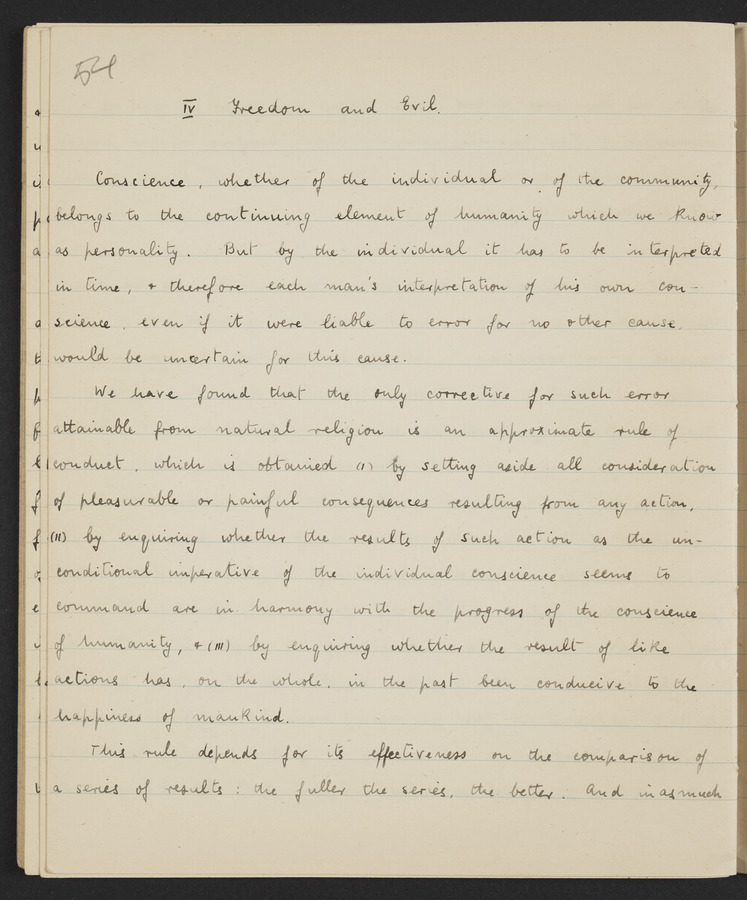 54
IV Freedom and Evil.
Conscience, whether of the individual or of the community,
belongs to the continuing element of humanity which we know
as personality. But by the individual it has to be interpreted
in time, & therefore each man's interpretation of his own con-
science, even if it were liable to error for no other cause,
would be uncertain for this cause.
We have found that the only corrective for such error
attainable from natural religion is an approximate rule of
conduct, which is obtained (I) by setting aside all consideration
of pleasurable or painful consequences resulting from any action,
(II) by enquiring whether the results of such action as the un-
conditional imperative of the individual conscience seems to
command are in harmony with the progress of the conscience
of humanity, & (III) by enquiring whether the result of like
actions has, on the whole, in the past been conducive to the
happiness of mankind.
This rule depends for its effectiveness on the comparison of
a series of results: the fuller the series, the better. And inasmuch